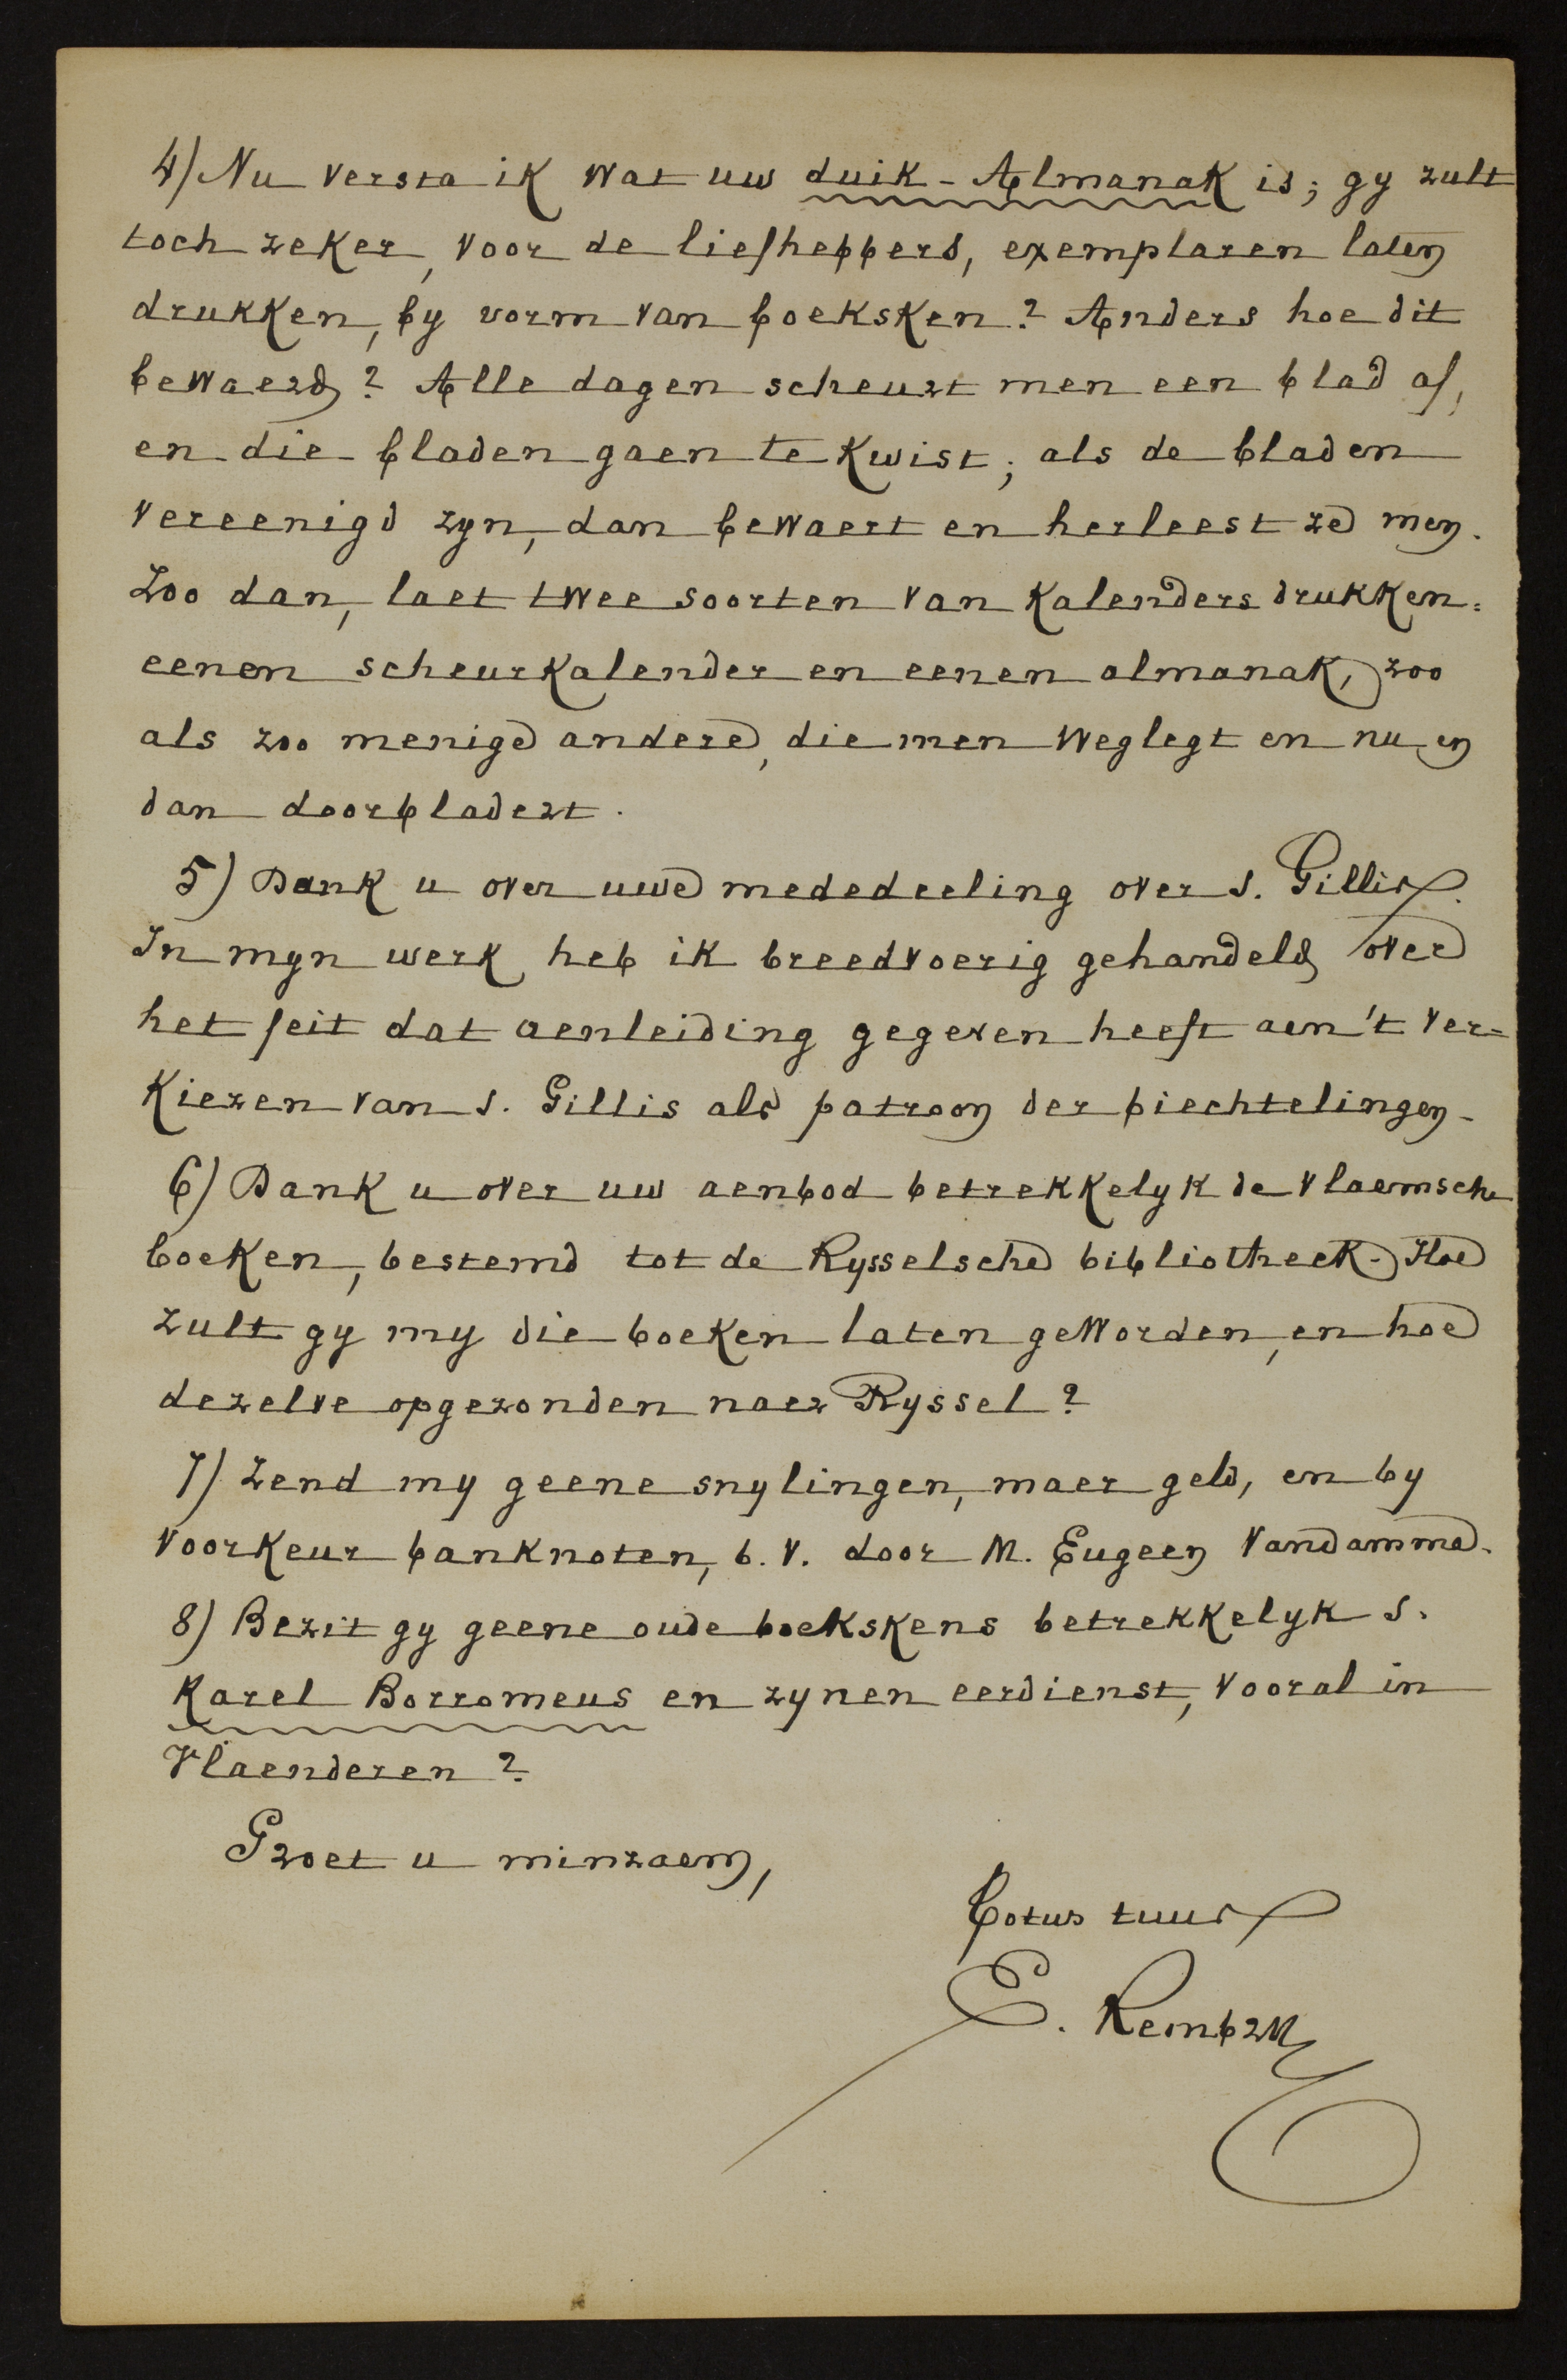 4) Nu versta ik wat uw duik-Almanak is; gy zult
toch zeker, voor de liefhebbers, exemplaren laten
drukken, by vorm van boeksken? Anders hoe dit
bewaerd? Alle dagen scheurt men een blad af,
en die bladen gaen te kwist; als de bladen
vereenigd zyn, dan bewaert en herleest ze men.
Zoo dan, laet twee soorten van kalenders drukken:
eenen scheurkalender en eenen almanak, zoo
als zoo menige andere, die men weglegt en nu en
dan doorbladert.
5) Dank u over uwe mededeeling over S. Gillis.
In myn werk heb ik breedvoerig gehandeld over
het feit dat aenleiding gegeven heeft aen 't ver-
kiezen van S. Gillis als patroon der biechtelingen.
6) Dank u over uw aenbod betrekkelyk de vlaemsche
boeken, bestemd tot de Rysselsche bibliotheek. Hoe
zult gy my die boeken laten geworden, en hoe
dezelve opgezonden naer Ryssel?
7) Zend my geene snylingen, maer geld, en by
voorkeur banknoten, b.v. door M. Eugeen Vandamme.
8) Bezit gy geene oude boekskens betrekkelyk S.
Karel Borromeus en zynen eerdienst, vooral in
Vlaenderen?
Groet u minzaem,
Totus tuus
E. Rembry